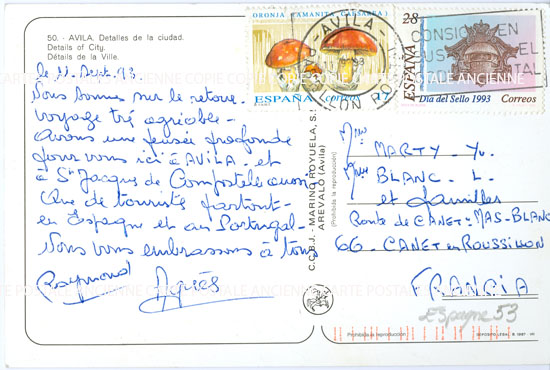 50. - AVILA. Detalles de la ciudad.
Details of City.
Détails de la Ville.
le 11 Sept. 93.
Nous sommes sur le retour.
voyage tré agréable -
avons une pensée profonde
pour vous ici à AVILA - et
à St Jacques de Compostele aussi
Que de touristes partout -
en Espagne et au Portugal -
Nous vous embrassons à tous
Raymond Agnès
C.C.B.J. - MARINO ROYUELA, S.
AREVALO (Avila)
(Prohibida la reproducción)
ORONJA (AMANITA CAESAREA)
ESPAÑA correos
AVILA
28
ESPAÑA
Día del Sello 1993 Correos
CONSIGNE EN
SU
EL
POSTAL
Mme MARTY - Yv.
Mme BLANC - L.
et familles
Route de CANET - MAS-BLANC
66 - CANET en ROUSSILLON
FRANCIA
Espagne 53
(Prohibida la reproducción)
CARTE POSTALE ANCIENNE